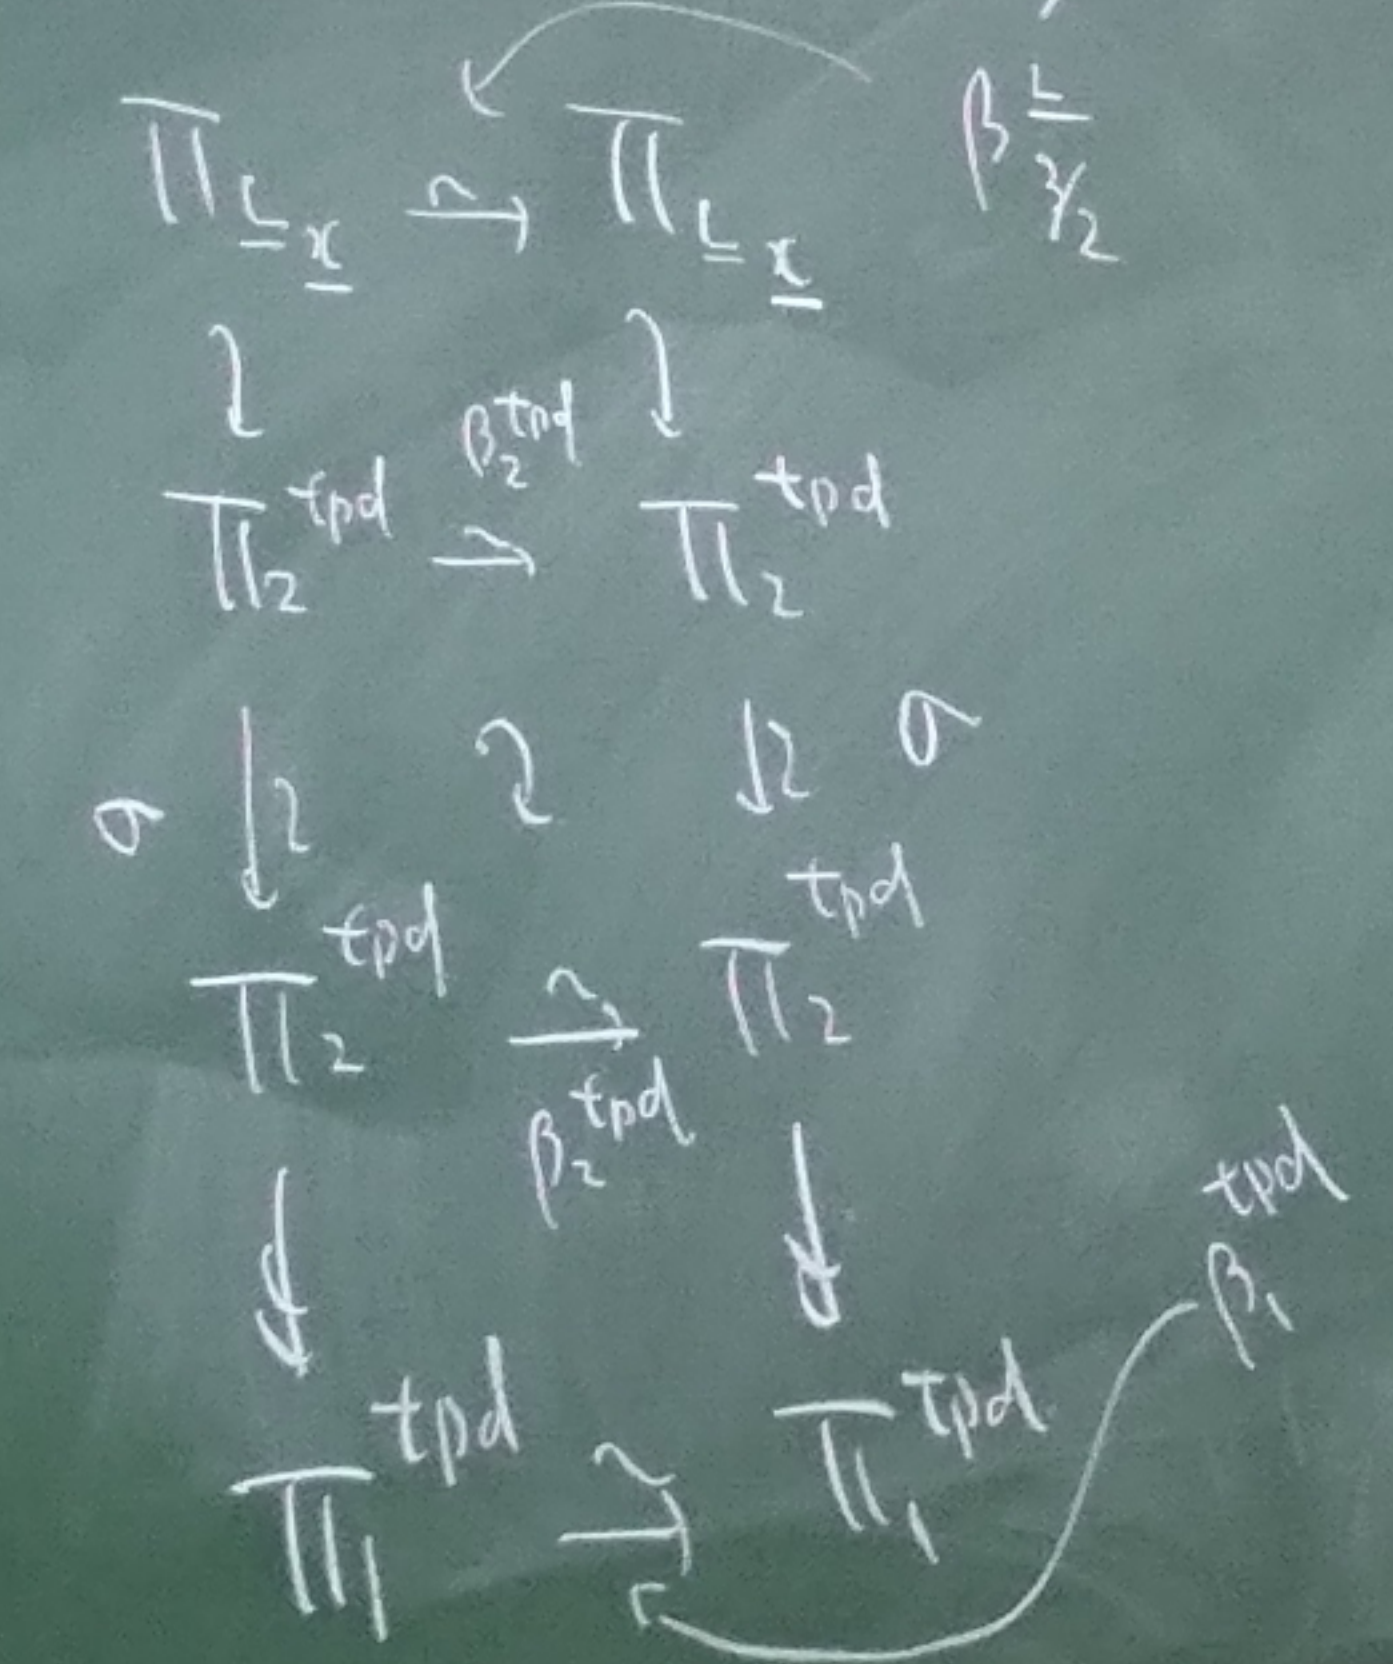 Π_{L_x} ⥲ Π_{L_x} β^L_{3/2}
β_2^{tpd}
Π_2^{tpd} ⥲ Π_2^{tpd}
σ ↓≀ ↓≀ σ
Π_2^{tpd} ⥲ Π_2^{tpd}
β_2^{tpd}
Π_1^{tpd} ⥲ Π_1^{tpd} β_1^{tpd}